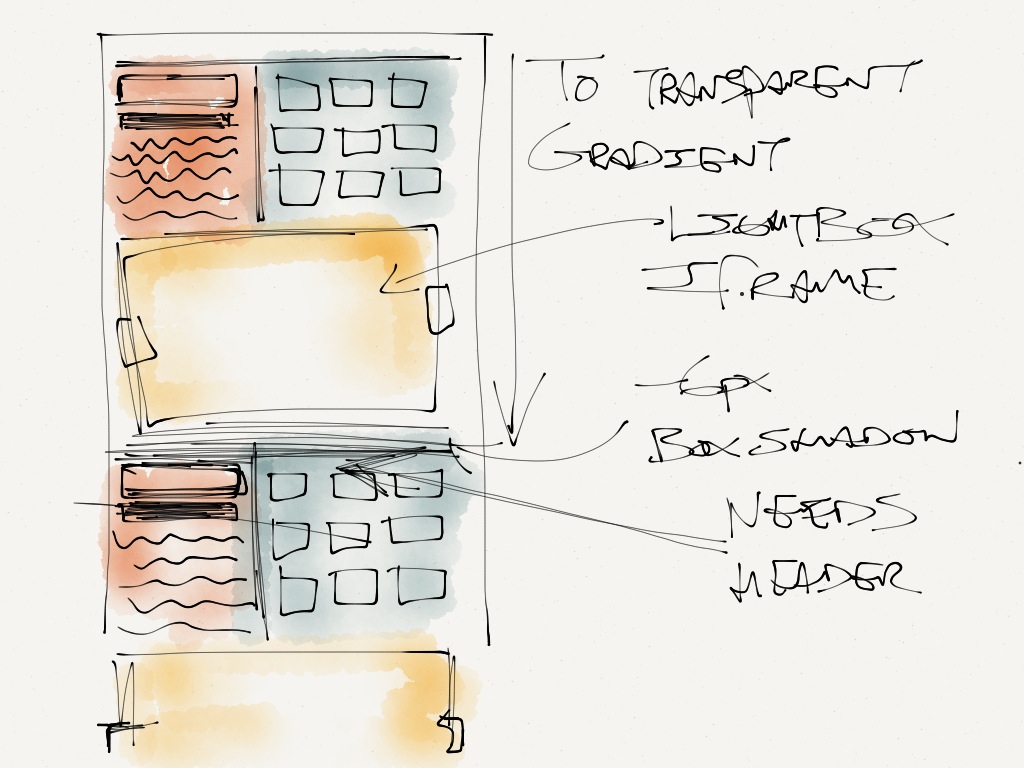 TO TRANSPARENT
GRADIENT
LIGHTBOX
IFRAME
6px
BOX SHADOW
NEEDS
HEADER